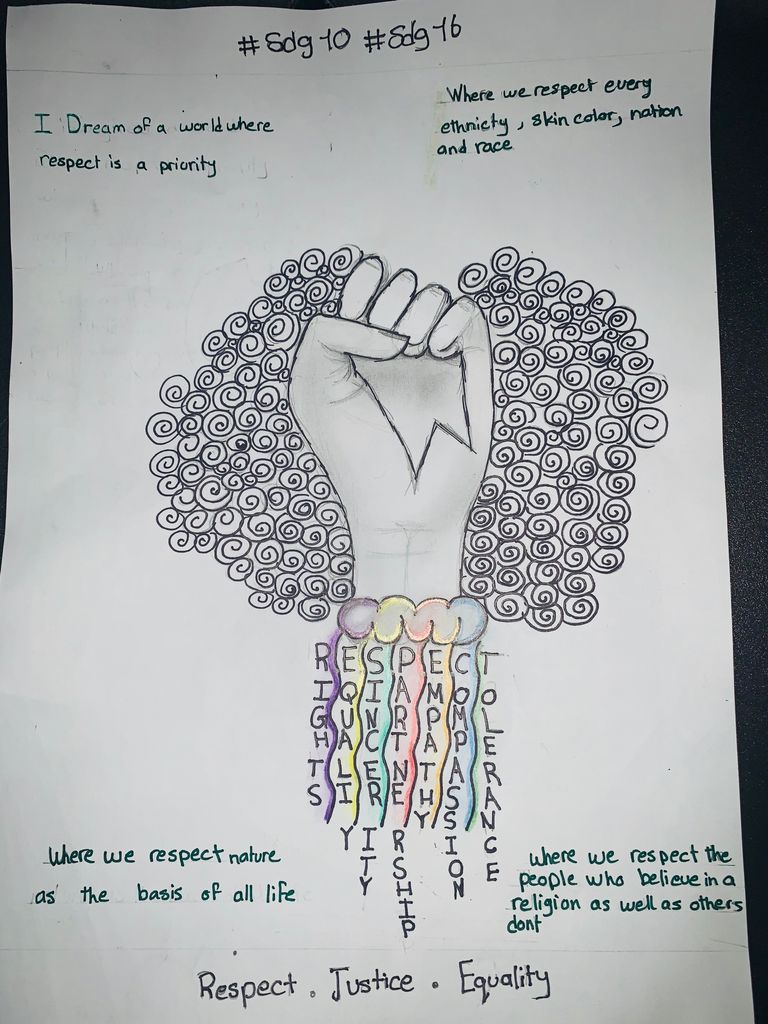 #Sdg10 #Sdg16
I Dream of a world where
respect is a priority
Where we respect every
ethnicty , skin color, nation
and race
RIGHTS
EQUALIY
SINCERITY
PARTNERSHIP
EMPATHY
COMPASSION
TOLERANCE
where we respect nature
as the basis of all life
where we respect the
people who believe in a
religion as well as others
dont
Respect . Justice . Equality